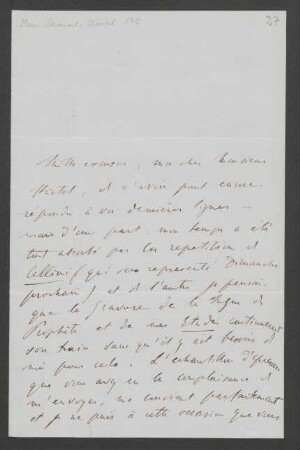 27
Mille excuses, mon cher Monsieur
Härtel, de n'avoir point encore
répondu à vos dernières lignes –
mais d'une part mon temps a été
tout absorbé par les répétitions de
Cellini (qui sera représenté Dimanche
prochain) et de l'autre je pensais
que la gravure de la fugue du
Prophète et de mes Etudes continuait
son train sans qu'il y ait besoin de
moi pour cela. L'échantillon d'épreuve
que vous avez eu la complaisance de
m'envoyer, me convient parfaitement
et je ne puis à cette occasion que vous